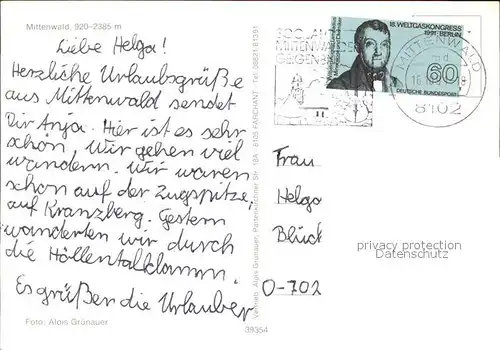 Mittenwald, 920-2385 m
Liebe Helga!
Herzliche Urlaubsgrüße
aus Mittenwald sendet
Dir Anja. Hier ist es sehr
schön. Wir gehen viel
wandern. Wir waren
schon auf der Zugspitze,
auf Kranzberg. Gestern
wanderten wir durch
die Höllentalklamm.
Es grüßen die Urlauber
Foto: Alois Grünauer
Vertrieb: Alois Grünauer, Partenkirchner Str. 18A · 8105 FARCHANT · Tel. 08821/61391
39354
300 JAHRE
MITTENWALDER
GEIGENBAU
18. WELTGASKONGRESS
1991 · BERLIN
60
DEUTSCHE BUNDESPOST
MITTENWALD
8102
Frau
Helga
Blück
O-702
privacy protection
Datenschutz